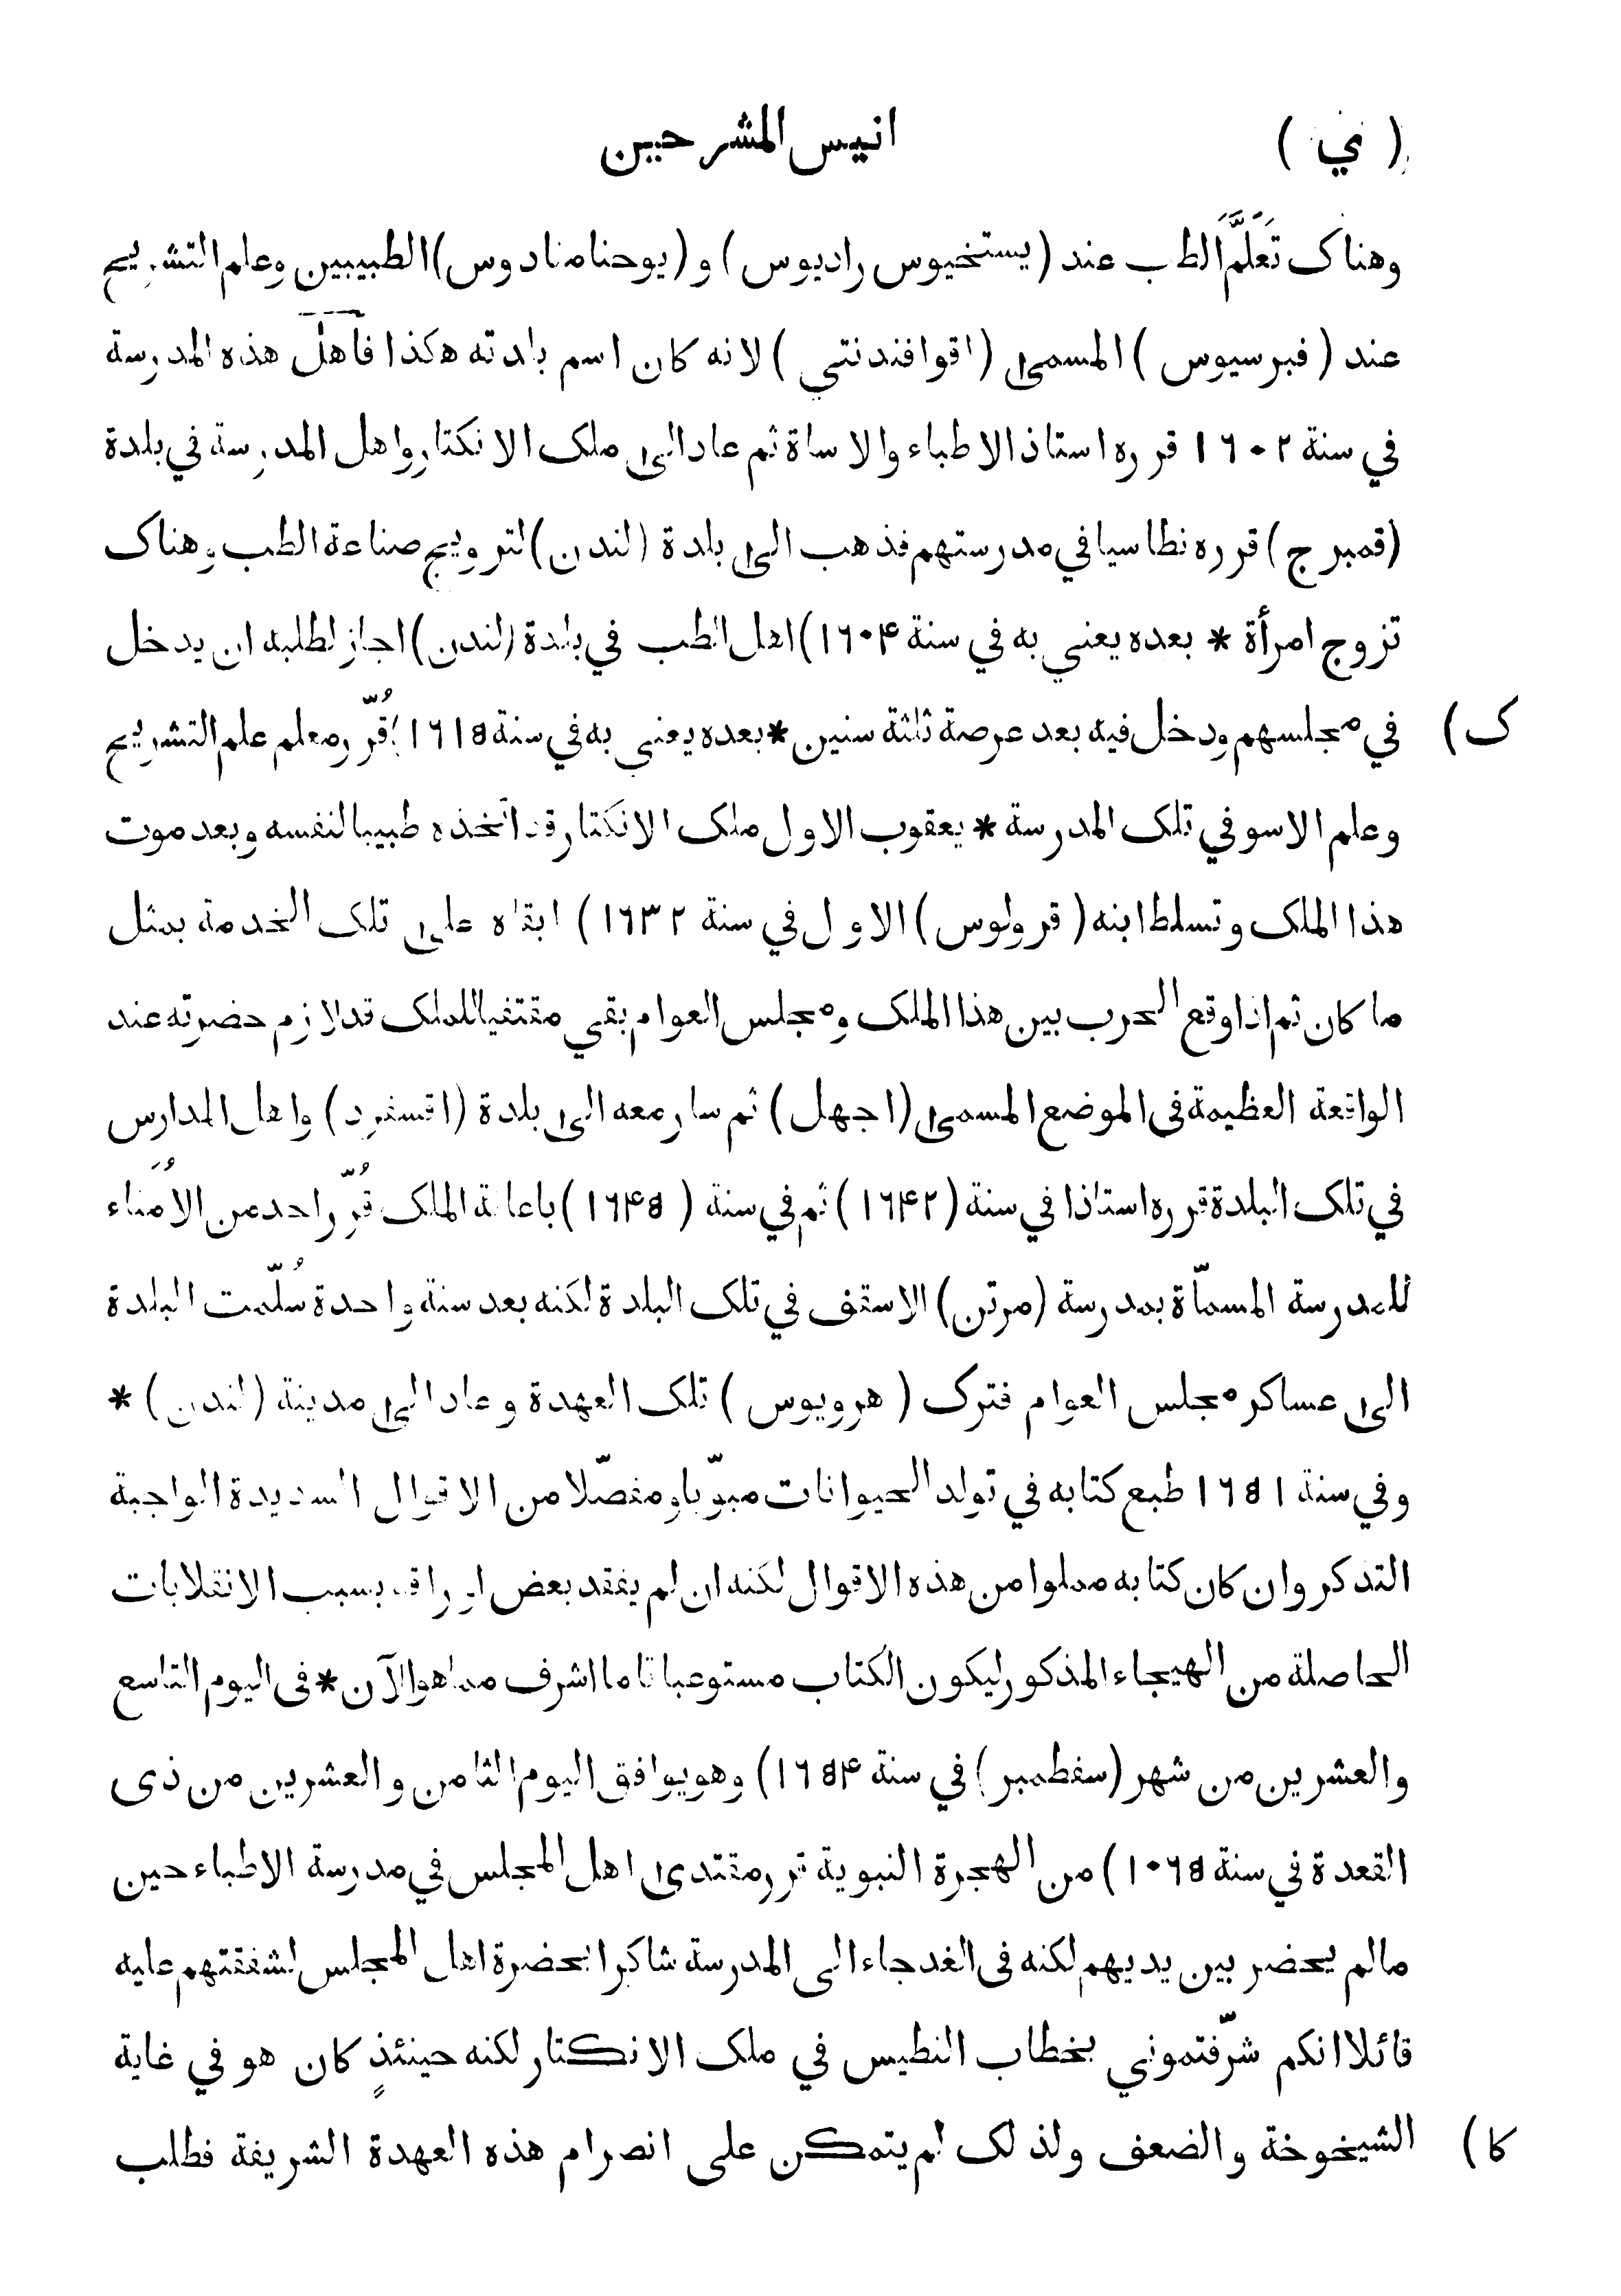 ( ني ) انيس المشرحين
وهناک تَعَلَّمَ الطب عند (يستخيوس راديوس) و (يوحنا منادوس) الطبيبين وعلم التشريح
عند (فبرسيوس) المسمى (اقوافندنتي) لانه كان اسم بلدته هكذا فاهل هذه المدرسة
في سنة ١٦٠٢ قرره استاذ الاطباء والاساة ثم عاد الى ملک الانکتار واهل المدرسة في بلدة
(قمبرج) قرره نطاسيا في مدرستهم فذهب الى بلدة (لندن) لترويج صناعة الطب وهناک
تزوج امرأة * بعده يعني به في سنة ١٦٠۴) اهل الطب في بلدة (لندن) اجاز لطلبه ان يدخل
ک) في مجلسهم ودخل فيه بعد عرصة ثلثة سنين * بعده يعني به في سنة ١٦١٥ قُرّر معلم علم التشريح
وعلم الاسو في تلک المدرسة * يعقوب الاول ملک الانکتار قد اتخذه طبيبا لنفسه وبعد موت
هذا الملک وتسلط ابنه (قرولوس) الاول في سنة ١٦٣٢) ابقاه على تلک الخدمة بمثل
ما كان ثم اذا وقع الحرب بين هذا الملک ومجلس العوام بقي مقتفيا للملک قد لازم حضرته عند
الواقعة العظيمة فى الموضع المسمى (اجهل) ثم سار معه الى بلدة (اقسفرد) واهل المدارس
في تلک البلدة قرره استاذا في سنة (١٦۴٢) ثم في سنة (١٦۴٥) باعانة الملک قُرّر احد من الاُمَناء
للمدرسة المسمّاة بمدرسة (مرتن) الاسقف في تلک البلدة لکنه بعد سنة واحدة سُلّمت البلدة
الى عساكر مجلس العوام فترک (هرويوس) تلک العهدة وعاد الى مدينة (لندن) *
وفي سنة ١٦٥١ طبع كتابه في تولد الحيوانات مبوّبا ومفصّلا من الاقوال السديدة الواجبة
التذكر وان كان كتابه مملوا من هذه الاقوال لكنه ان لم يفقد بعض اوراقه بسبب الانقلابات
الحاصلة من الهيجاء المذكور ليكون الكتاب مستوعبا تاما اشرف مما هو الآن * فى اليوم التاسع
والعشرين من شهر (سفطمبر) في سنة ١٦٥۴) وهو يوافق اليوم الثامن والعشرين من ذى
القعدة في سنة ١٠٦٥) من الهجرة النبوية قرر مقتدى اهل المجلس في مدرسة الاطباء حين
مالم يحضر بين يديهم لكنه فى الغد جاء الى المدرسة شاكرا بحضرة اهل المجلس لشفقتهم عليه
قائلا انكم شرّفتموني بخطاب النطيس في ملک الانكتار لكنه حينئذٍ كان هو في غاية
کا) الشيخوخة والضعف ولذلک لم يتمكن على انصرام هذه العهدة الشريفة فطلب